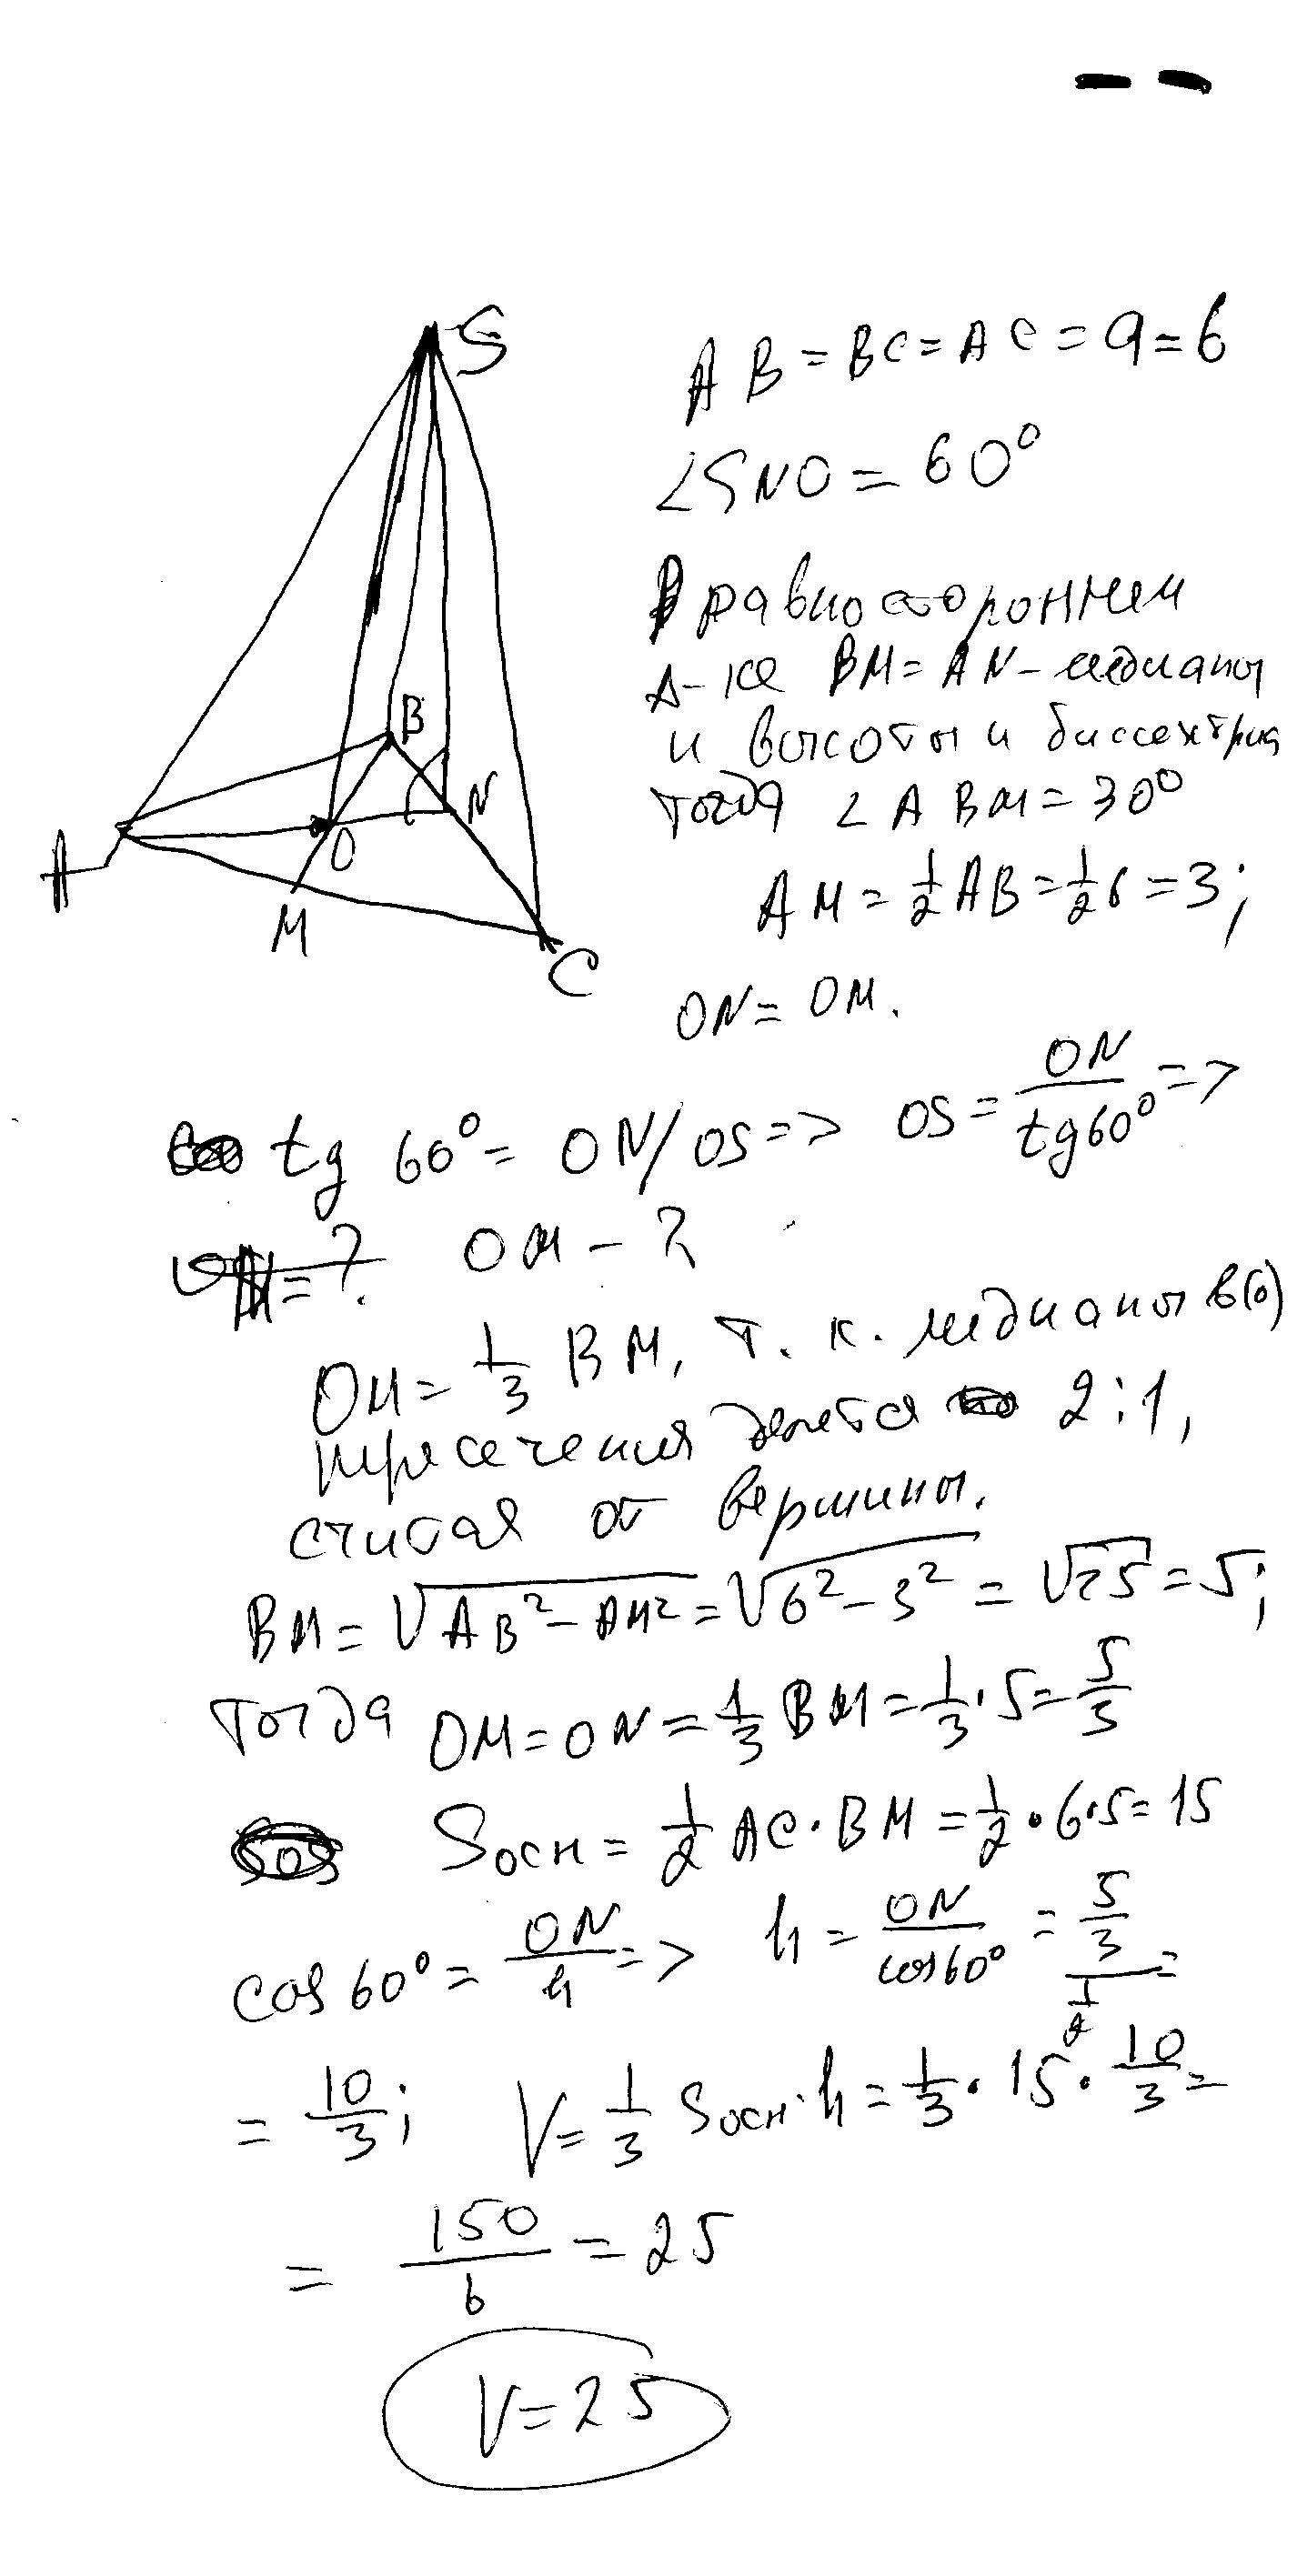 S
AB = BC = AC = a = 6
∠SNO = 60°
В равностороннем
Δ-ке BM = AN - медианы
и высоты и биссектрис
B
N
A
O
M
C
тогда ∠ABM = 30°
AM = 1/2 AB = 1/2 6 = 3;
ON = OM.
tg 60° = ON/OS => OS = ON/tg60° =>
OM = ?. OM - ?
OM = 1/3 BM, т. к. медианы в(о)
пересечения делятся 2:1,
считая от вершины.
BM = √AB² - AM² = √6² - 3² = √25 = 5;
тогда OM = ON = 1/3 BM = 1/3 · 5 = 5/3
Sосн = 1/2 AC · BM = 1/2 · 6 · 5 = 15
cos 60° = ON/h => h = ON/cos60° = 5/3 / 1/2 =
= 10/3; V = 1/3 Sосн · h = 1/3 · 15 · 10/3 =
= 150/6 = 25
V = 25